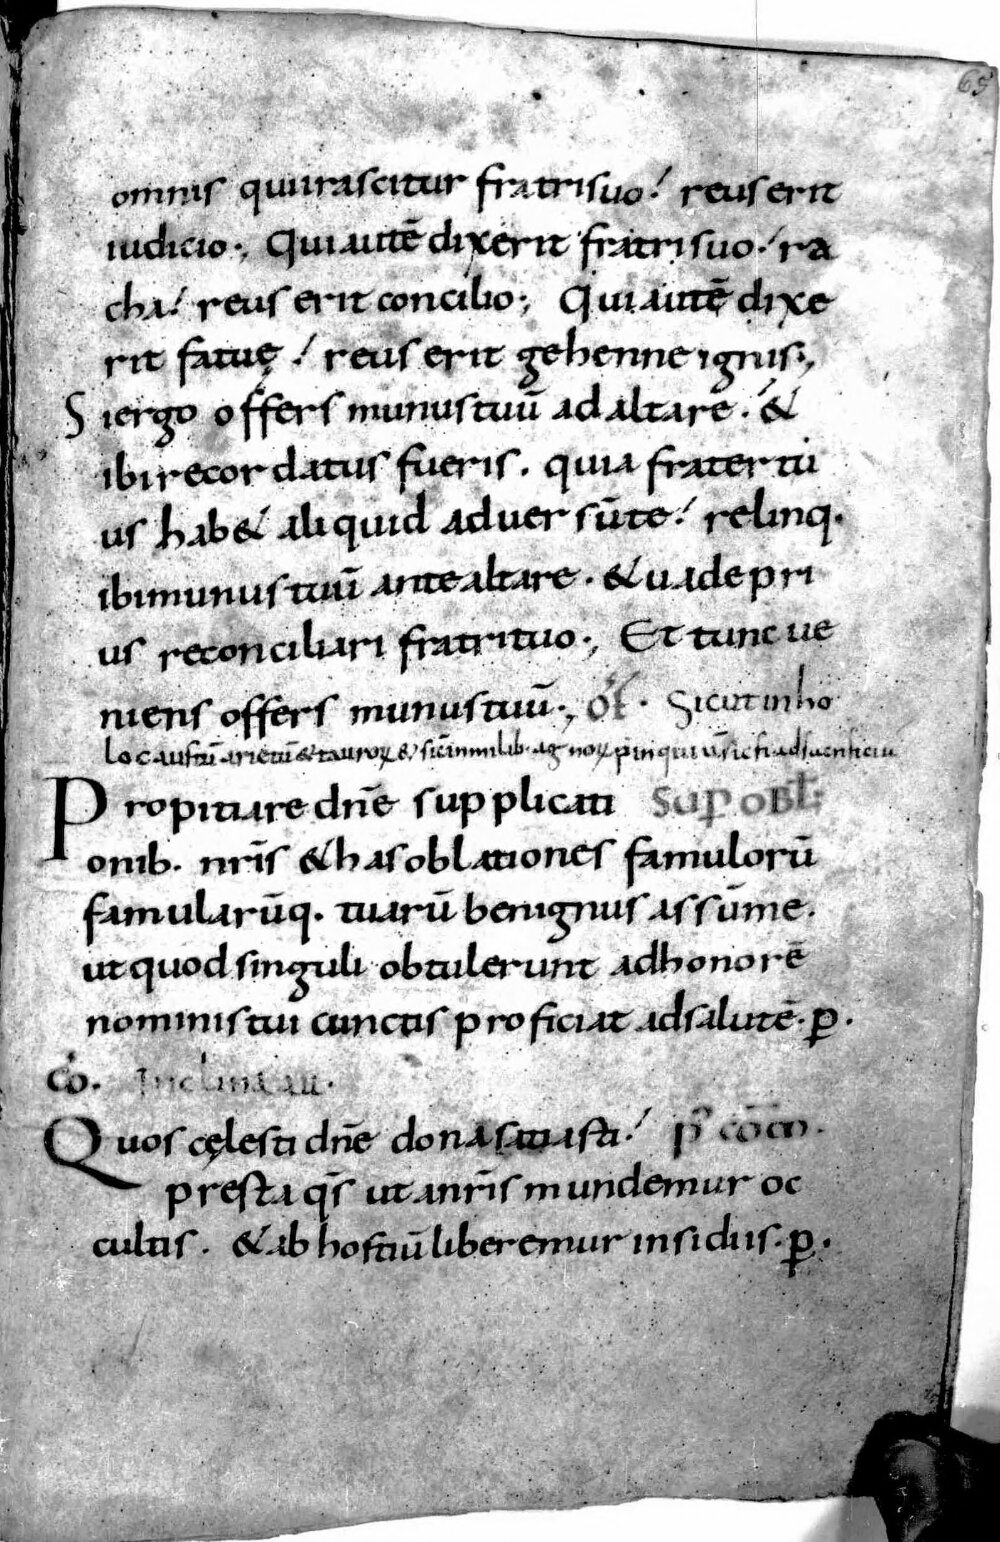 65
omnis quiirascitur fratrisuo! reus erit
iudicio·, Qui autē dixerit fratri suo! ra
cha! reus erit concilio·, Qui autē dixe
rit fatuę! reus erit gehenne ignis·,
Siergo offers munus tuū ad altare·! &
ibi recordatus fueris. quia frater tu
us hab& aliquid aduersū te! relinq.
ibi munus tuū ante altare. & uade pri
us reconciliari fratrituo·, Et tunc ue
niens offers munus tuū·, Of. Sicut in ho
locaustū arietū & tauroꝝ & sic in milib. agnoꝝ pinguiū sic fi ad
Propitiare dnē supplicati Suꝑ obl.
onib. nrīs & has oblationes famulorū
famularūq. tuarū benignus assūme.
ut quod singuli obtulerunt adhonorē
nominis tui cunctis proficiat adsalutē. p̄.
Cō. Inclina au.
Quos cęlesti dnē dona satiasti! p̄ cōm.
presta qs̄ ut anrīs mundemur oc
cultis. & ab hostiū liberemur insidiis. p̄.